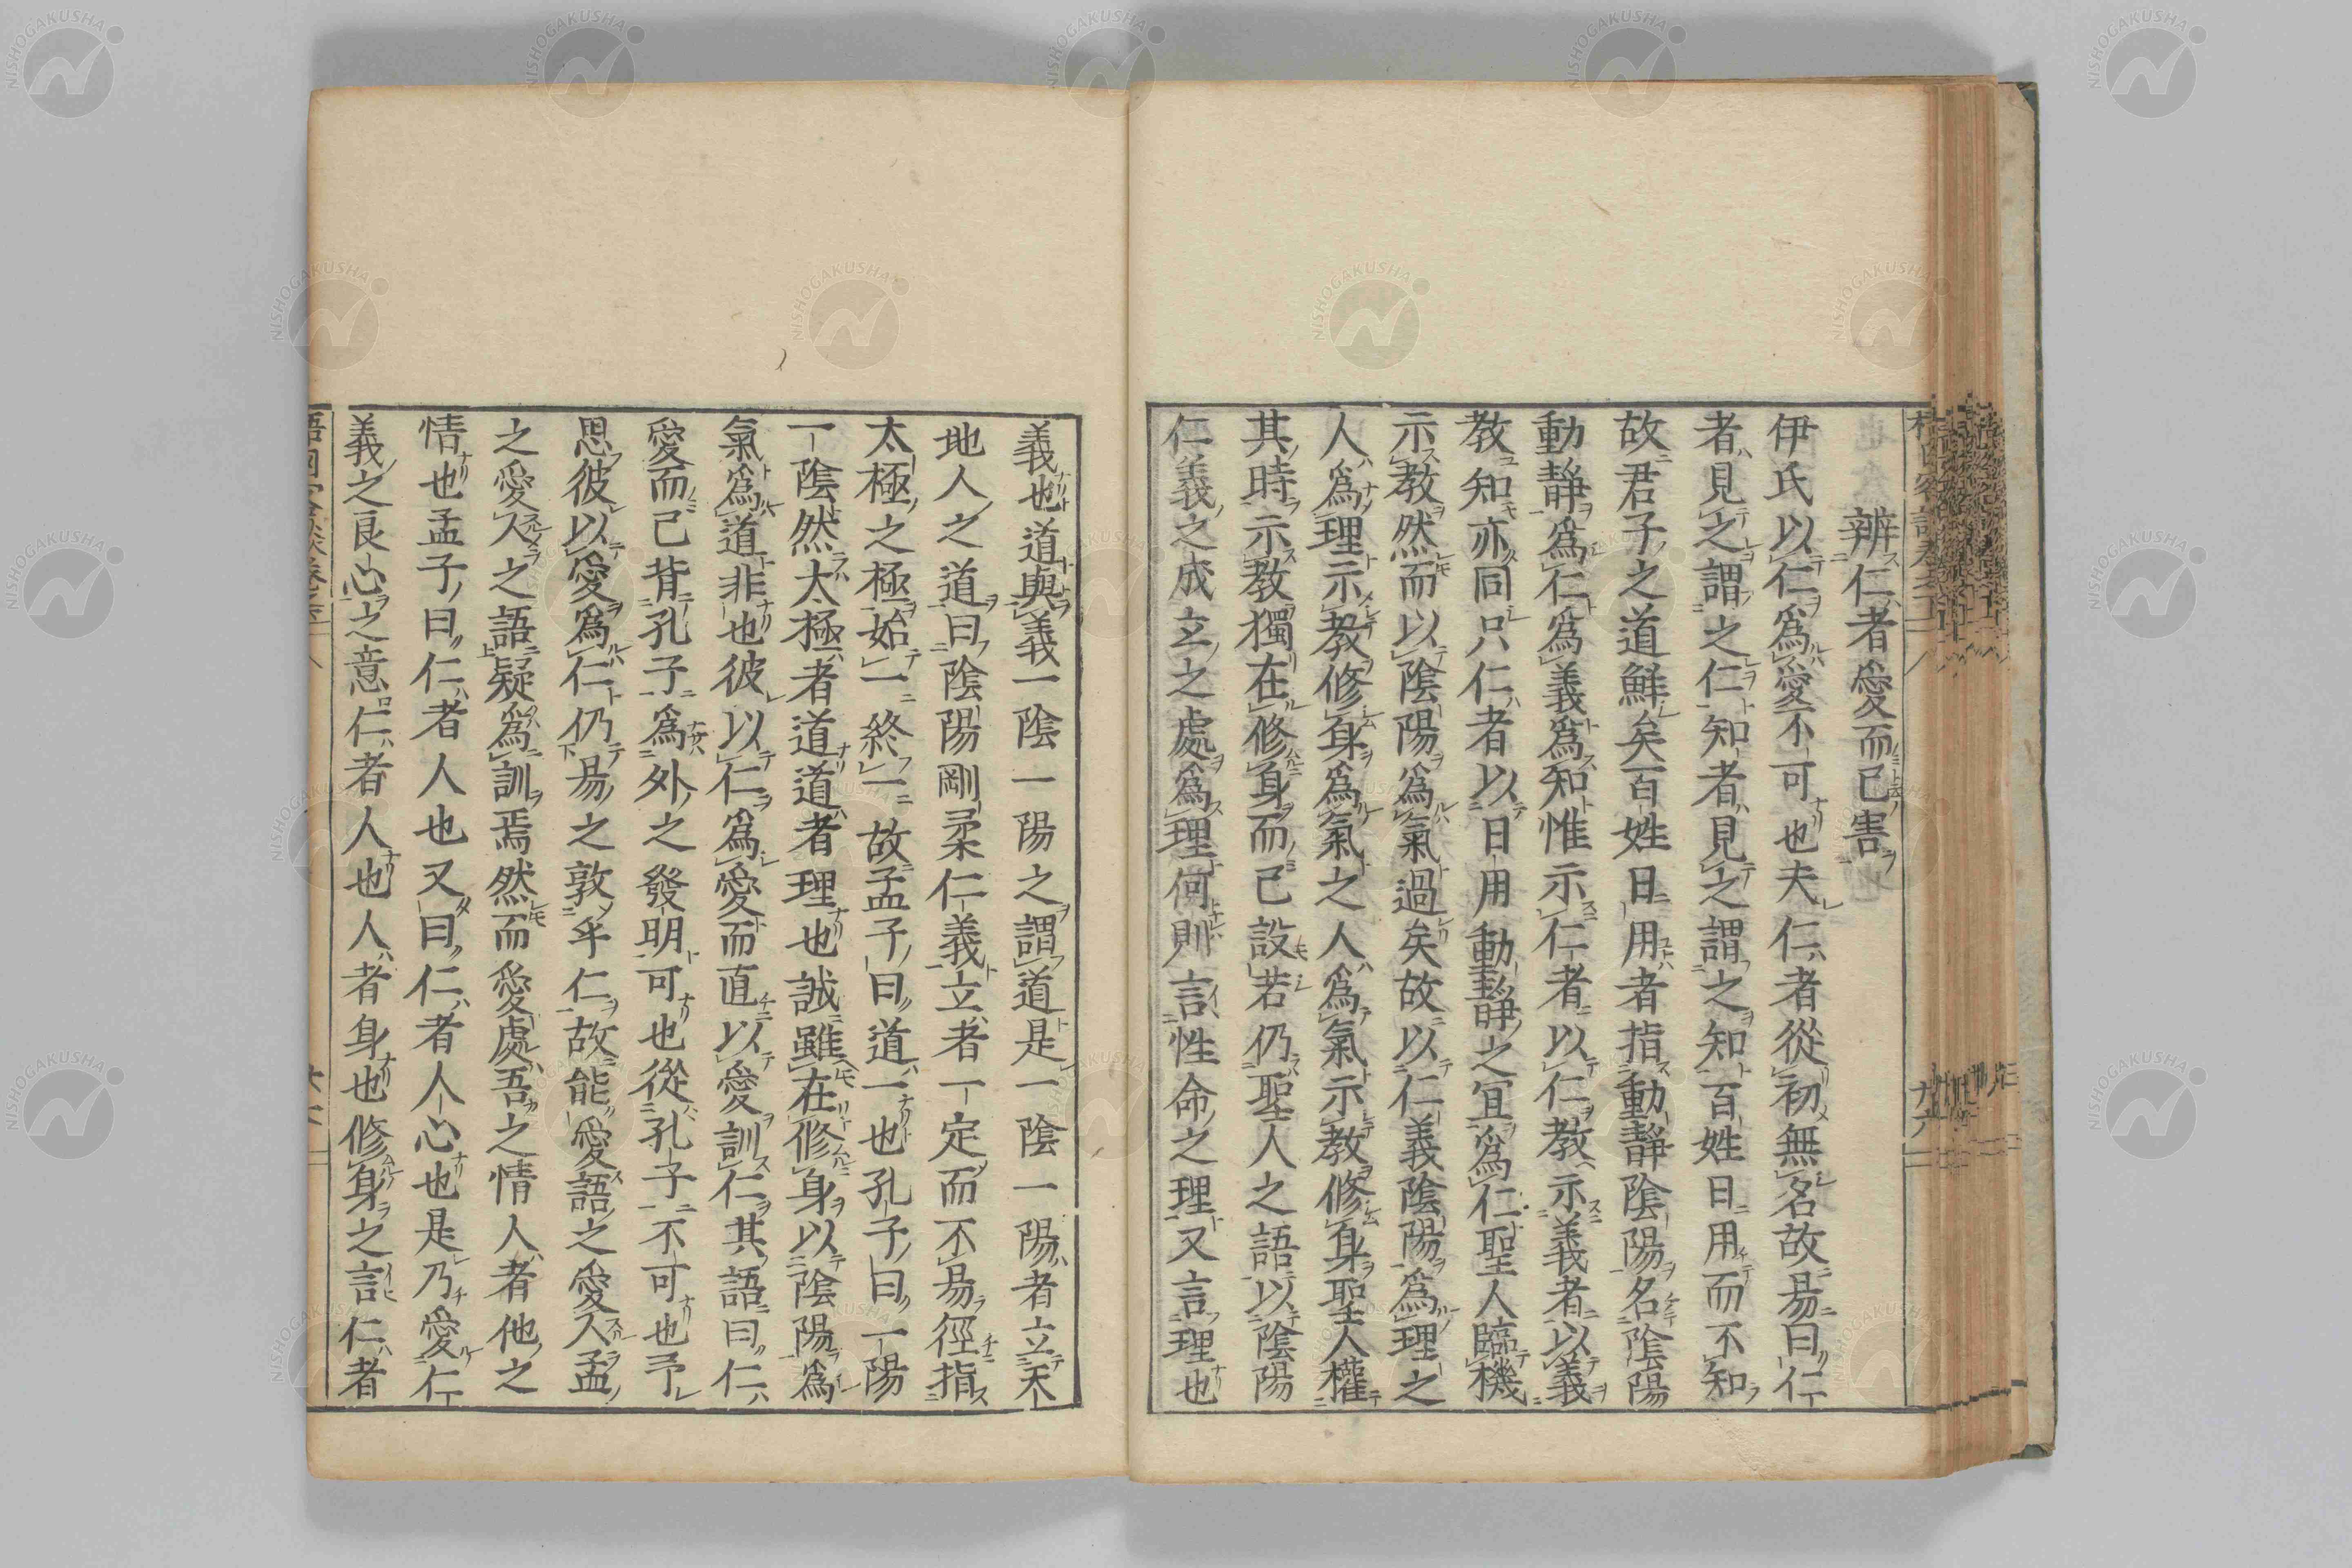 辨仁者愛而已害
伊氏以仁爲愛不可也夫仁者從初無名故易曰仁
者見之謂之仁知者見之謂之知百姓日用而不知
故君子之道鮮矣百姓日用者指動靜陰陽名陰陽
動靜爲仁爲義爲知惟示仁者以仁教示義者以義
教知亦同只仁者以日用動靜之冝爲仁聖人臨機
示教然而以陰陽爲氣過矣故以仁義陰陽爲理之
人爲理示教修身爲氣之人爲氣示教修身聖人權
其時示教獨在修身而已設若仍聖人之語以陰陽
仁義之成立之處爲理何則言性命之理又言理也
義也道與義一陰一陽之謂道是一陰一陽者立天
地人之道曰陰陽剛柔仁義立者一定而不易徑指
太極之極始一終一故孟子曰道一也孔子曰一陽
一陰然太極者道道者理也誠雖在修身以陰陽爲
氣爲道非也彼以仁爲愛而直以愛訓仁其語曰仁
愛而已背孔子爲外之發明可也從孔子不可也予
思彼以愛爲仁仍易之敦乎仁故能愛語之愛人孟
之愛人之語疑爲訓焉然而愛處吾之情人者他之
情也孟子曰仁者人也又曰仁者人心也是乃愛仁
義之良心之意仁者人也人者身也修身之言仁者